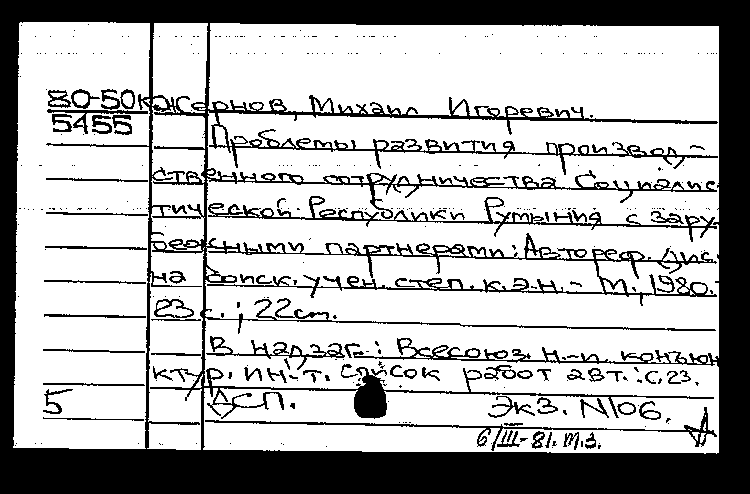 80-50к Жернов, Михаил Игоревич.
5455
Проблемы развития производ-
ственного сотрудничества Социалис-
тической Республики Румыния с зару-
бежными партнерами: Автореф. дис.
на соиск. учен. степ. к.э.н. - М., 1980. -
23 с.; 22 см.
В надзаг.: Всесоюз. н.-и. конъюн
ктур. ин-т. Список работ авт.: с. 23.
5 ДСП. Экз. N106.
6/III-81. т.з.